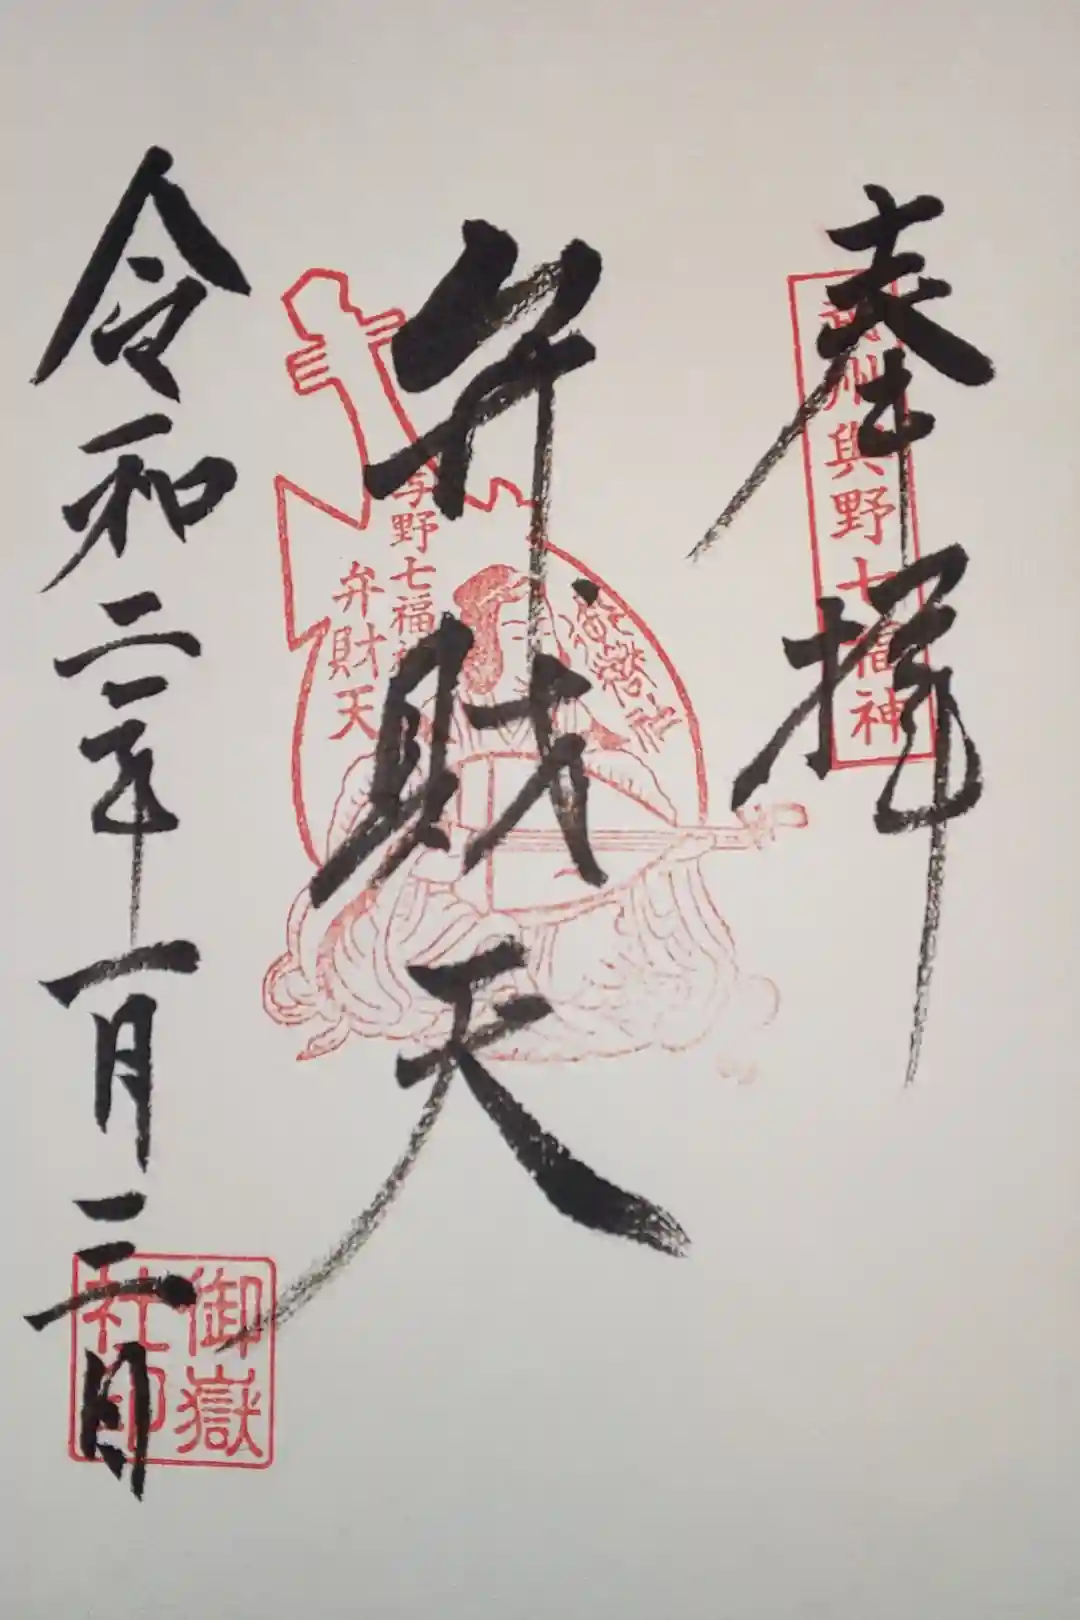 奉拝
武州與野七福神
弁財天
与野七福神
弁財天
御嶽社
令和二年一月二日
御嶽
社印